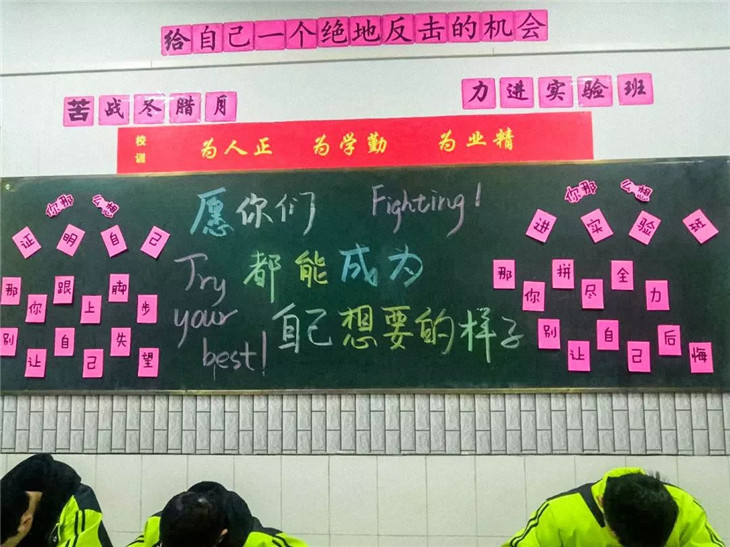 给自己一个绝地反击的机会
苦战冬腊月
力进实验班
校训
为人正 为学勤 为业精
你那么想
证明自己
那你跟上脚步
别让自己失望
愿你们 Fighting!
都能成为
自己想要的样子
Try
your
best!
你那么想
进实验班
那你拼尽全力
别让自己后悔